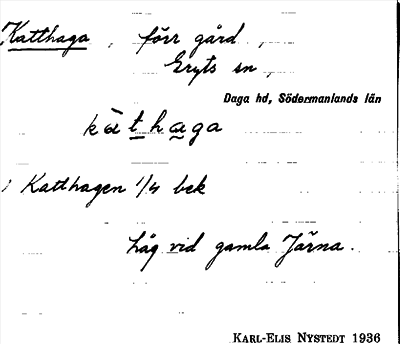 Katthaga, förr gård,
Gryts sn,
Daga hd, Södermanlands län
kàthaga
Katthagen 1/4 bek
Låg vid gamla Järna.
KARL-ELIS NYSTEDT 1936